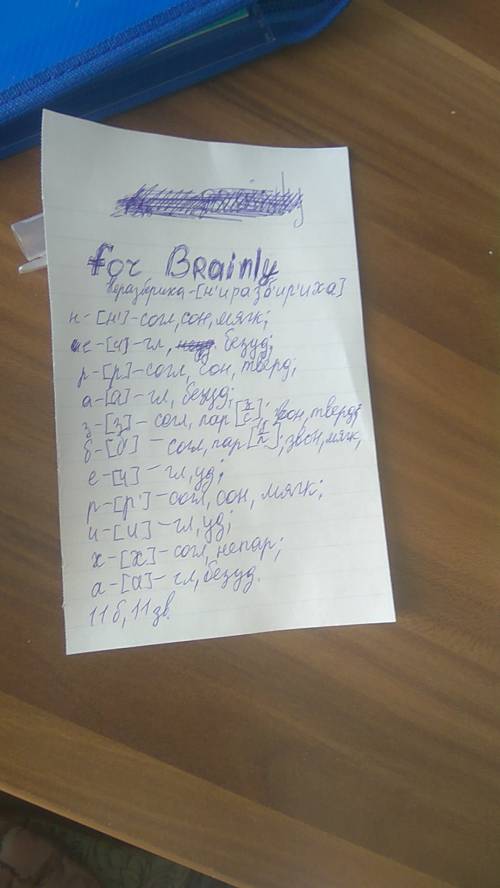 for Brainly
неразбериха-[н'иразбир'иха]
н-[н']-согл, сон, мягк;
е-[и]-гл, безуд;
р-[р]-согл, сон, тверд;
а-[а]-гл, безуд;
з-[з]-согл, пар[з/с]; звон, тверд;
б-[б']-согл, пар[б/п]; звон, мягк,
е-[и]-гл, уд;
р-[р']-согл, сон, мягк;
и-[и]-гл, уд;
х-[х]-согл, непар;
а-[а]-гл, безуд.
11б, 11зв.